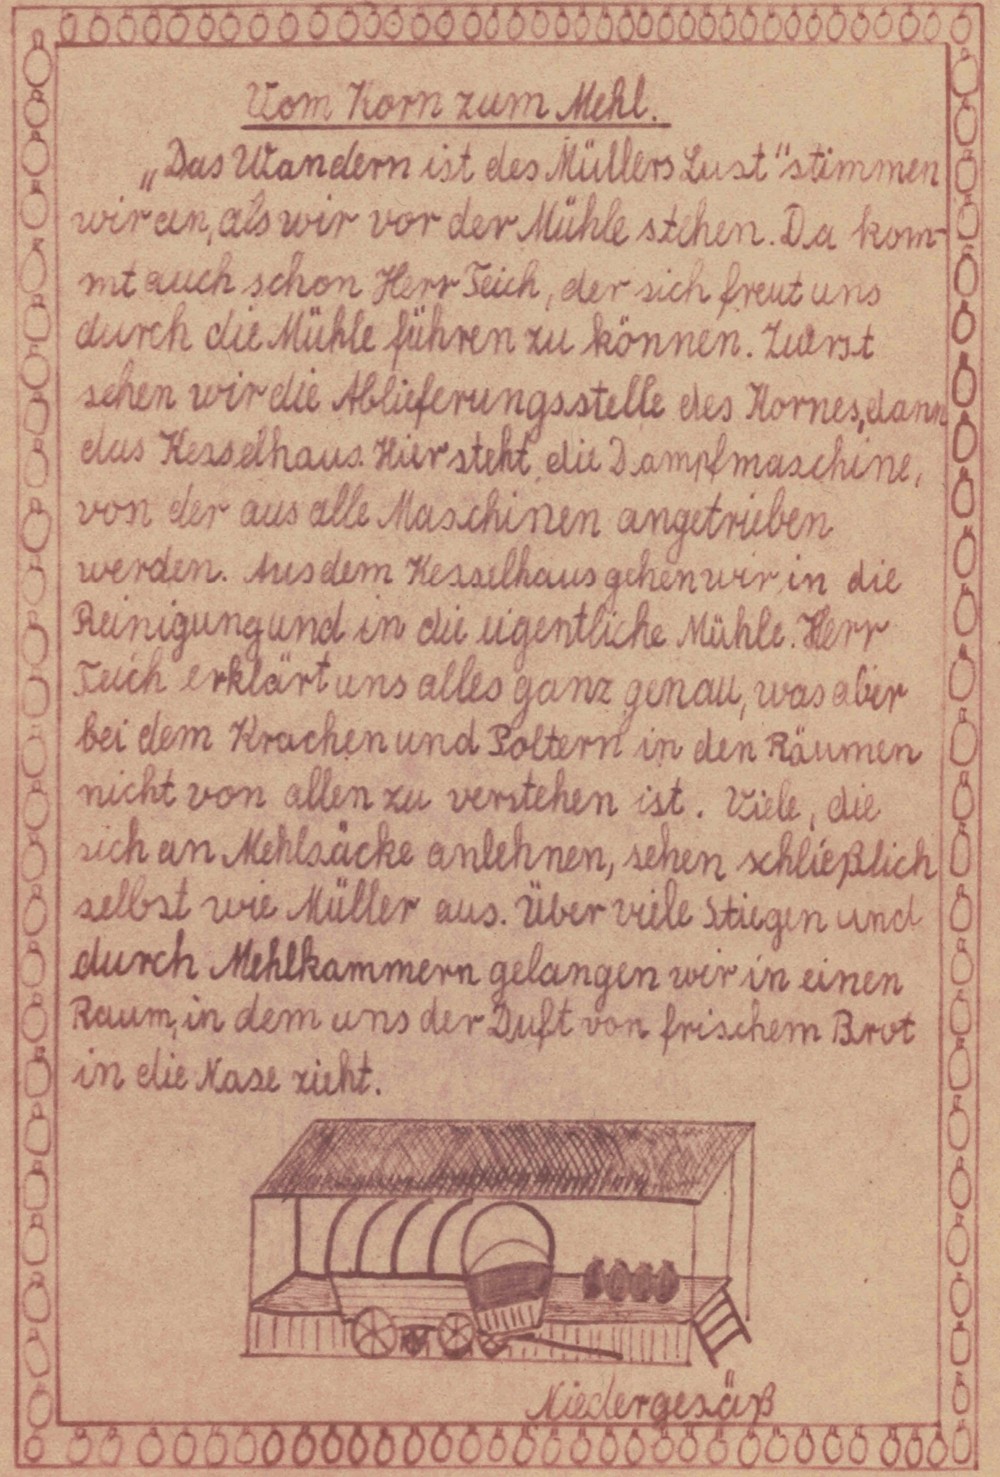 Vom Korn zum Mehl.
„Das Wandern ist des Müllers Lust" stimmen
wir an, als wir vor der Mühle stehen. Da kom-
mt auch schon Herr Teich, der sich freut uns
durch die Mühle führen zu können. Zuerst
sehen wir die Ablieferungsstelle des Kornes, dann
das Kesselhaus. Hier steht die Dampfmaschine,
von der aus alle Maschinen angetrieben
werden. Aus dem Kesselhaus gehen wir in die
Reinigung und in die eigentliche Mühle. Herr
Teich erklärt uns alles ganz genau, was aber
bei dem Krachen und Poltern in den Räumen
nicht von allen zu verstehen ist. Viele, die
sich an Mehlsäcke anlehnen, sehen schließlich
selbst wie Müller aus. Über viele Stiegen und
durch Mehlkammern gelangen wir in einen
Raum, in dem uns der Duft von frischem Brot
in die Nase zieht.
Niedergesäß